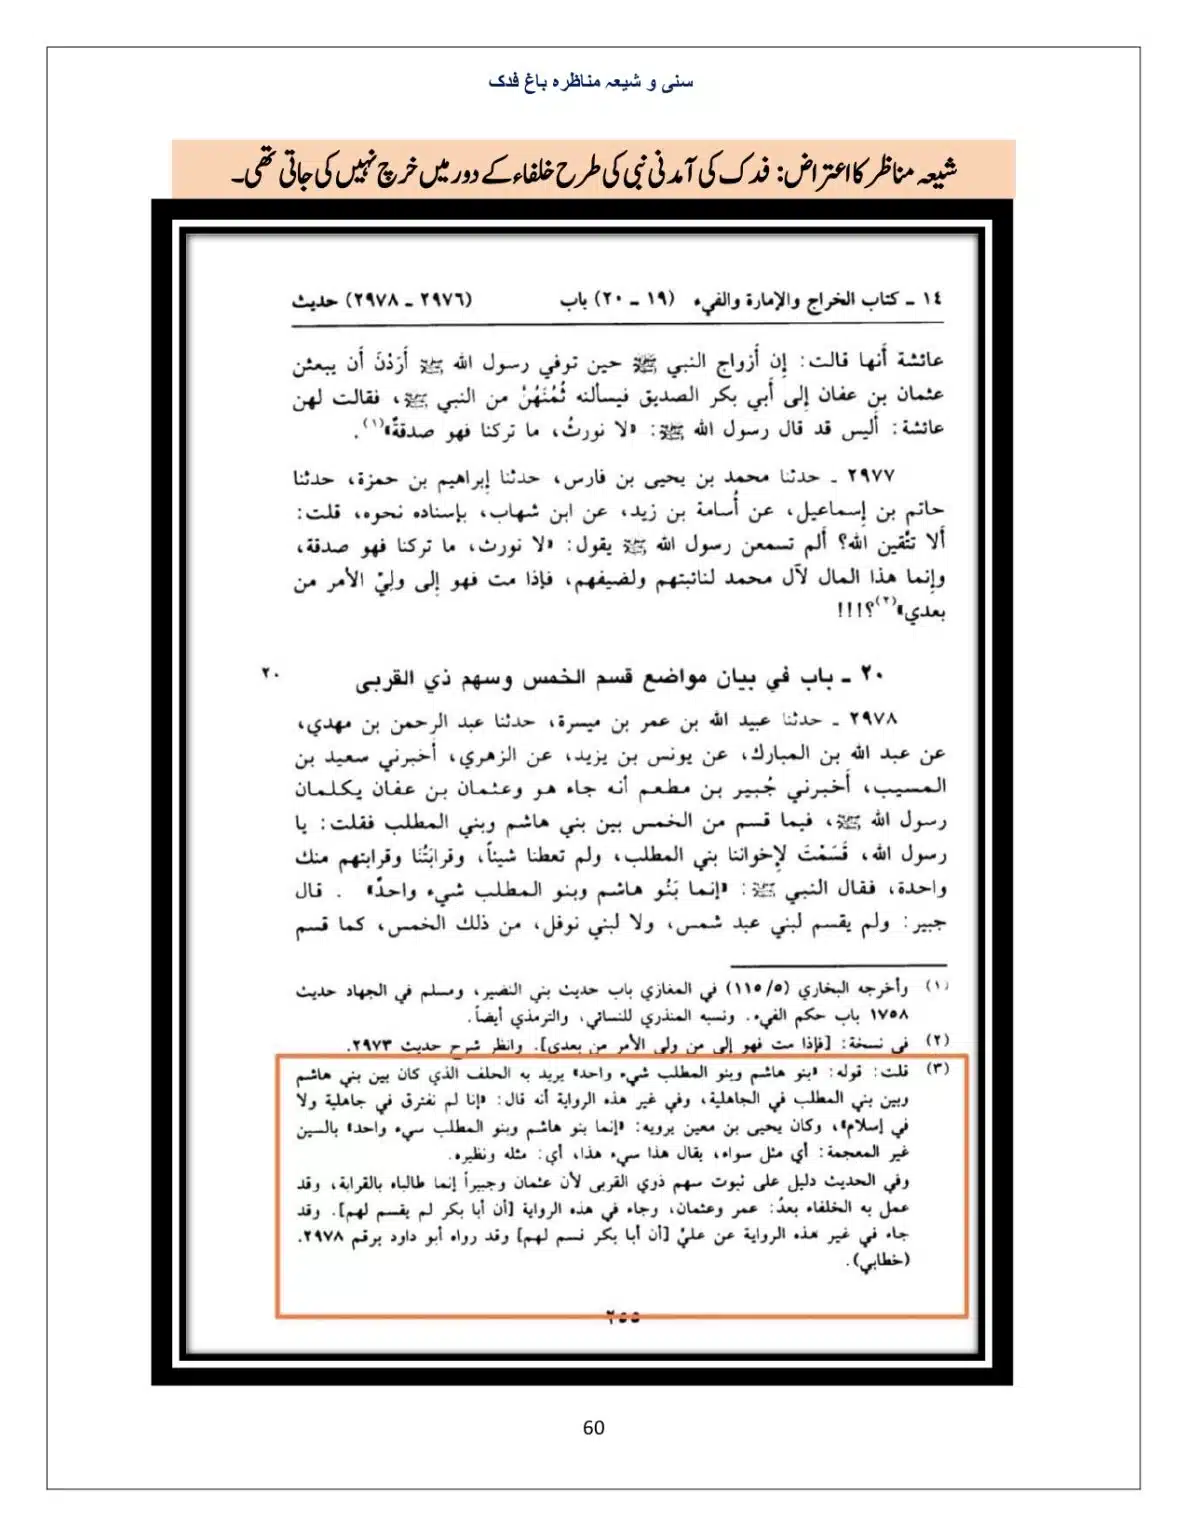 سنی و شیعہ مناظرہ باغ فدک
شیعہ مناظر کا اعتراض: فدک کی آمدنی نبی کی طرح خلفاء کے دور میں خرچ نہیں کی جاتی تھی۔
١٤ ـ كتاب الخراج والإمارة والفيء (١٩ ـ ٢٠) باب (٢٩٧٦ ـ ٢٩٧٨) حديث
عائشة أنها قالت: إن أزواج النبي ﷺ حين توفي رسول الله ﷺ أَرَدْنَ أن يبعثن
عثمان بن عفان إلى أبي بكر الصديق فيسألنه ثُمُنَهُنَّ من النبي ﷺ، فقالت لهن
عائشة: أليس قد قال رسول الله ﷺ: «لا نورثُ، ما تركنا فهو صدقةٌ»(١).
٢٩٧٧ ـ حدثنا محمد بن يحيى بن فارس، حدثنا إبراهيم بن حمزة، حدثنا
حاتم بن إسماعيل، عن أُسامة بن زيد، عن ابن شهاب، بإسناده نحوه، قلت:
ألا تتَّقين الله؟ ألم تسمعن رسول الله ﷺ يقول: «لا نورث، ما تركنا فهو صدقة،
وإنما هذا المال لآل محمد لنائبتهم ولضيفهم، فإذا مت فهو إلى وليِّ الأمر من
بعدي»(٢)؟!!!
٢٠ ـ باب في بيان مواضع قسم الخمس وسهم ذي القربى ٢٠
٢٩٧٨ ـ حدثنا عبيد الله بن عمر بن ميسرة، حدثنا عبد الرحمن بن مهدي،
عن عبد الله بن المبارك، عن يونس بن يزيد، عن الزهري، أخبرني سعيد بن
المسيب، أَخبرني جُبير بن مطعم أنه جاء هو وعثمان بن عفان يكلمان
رسول الله ﷺ، فيما قسم من الخمس بين بني هاشم وبني المطلب فقلت: يا
رسول الله، قَسَمْتَ لإخواننا بني المطلب، ولم تعطنا شيئاً، وقرابَتُنا وقرابتهم منك
واحدة، فقال النبي ﷺ: «إنما بَنُو هاشم وبنو المطلب شيء واحدٌ» . قال
جبير: ولم يقسم لبني عبد شمس، ولا لبني نوفل، من ذلك الخمس، كما قسم
(١) وأخرجه البخاري (٥/١١٥) في المغازي باب حديث بني النضير، ومسلم في الجهاد حديث
١٧٥٨ باب حكم الفيء. ونسبه المنذري للنسائي، والترمذي أيضاً.
(٢) في نسخة: [فإذا مت فهو إلى من ولي الأمر من بعدي]. وانظر شرح حديث ٢٩٧٣.
(٣) قلت: قوله: «بنو هاشم وبنو المطلب شيء واحد» يريد به الحلف الذي كان بين بني هاشم
وبين بني المطلب في الجاهلية، وفي غير هذه الرواية أنه قال: «إنا لم نفترق في جاهلية ولا
في إسلام»، وكان يحيى بن معين يرويه: «إنما بنو هاشم وبنو المطلب سيء واحد» بالسين
غير المعجمة: أي مثل سواء، يقال هذا سيء هذا، أي: مثله ونظيره.
وفي الحديث دليل على ثبوت سهم ذوي القربى لأن عثمان وجبيراً إنما طالباه بالقرابة، وقد
عمل به الخلفاء بعدُ: عمر وعثمان، وجاء في هذه الرواية [أن أبا بكر لم يقسم لهم]. وقد
جاء في غير هذه الرواية عن عليّ [أن أبا بكر قسم لهم] وقد رواه أبو داود برقم ٢٩٧٨.
(خطابي).
٢٥٥
60